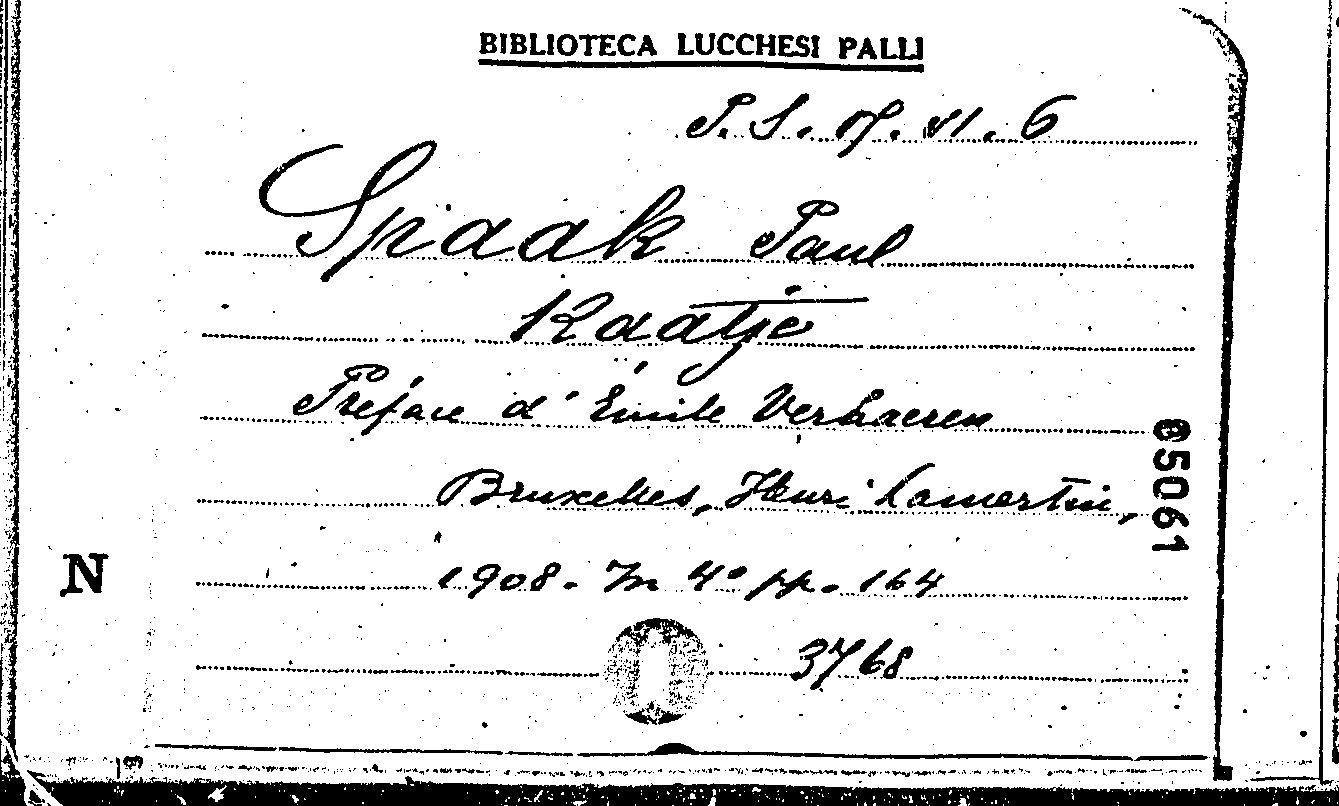 BIBLIOTECA LUCCHESI PALLI
P. S. 17. VI. 6
Spaak Paul
Kaatje
Préface d' Émile Verhaeren
Bruxelles, Henri Lamertin,
1908. In 4° pp. 164
3768
N
65061